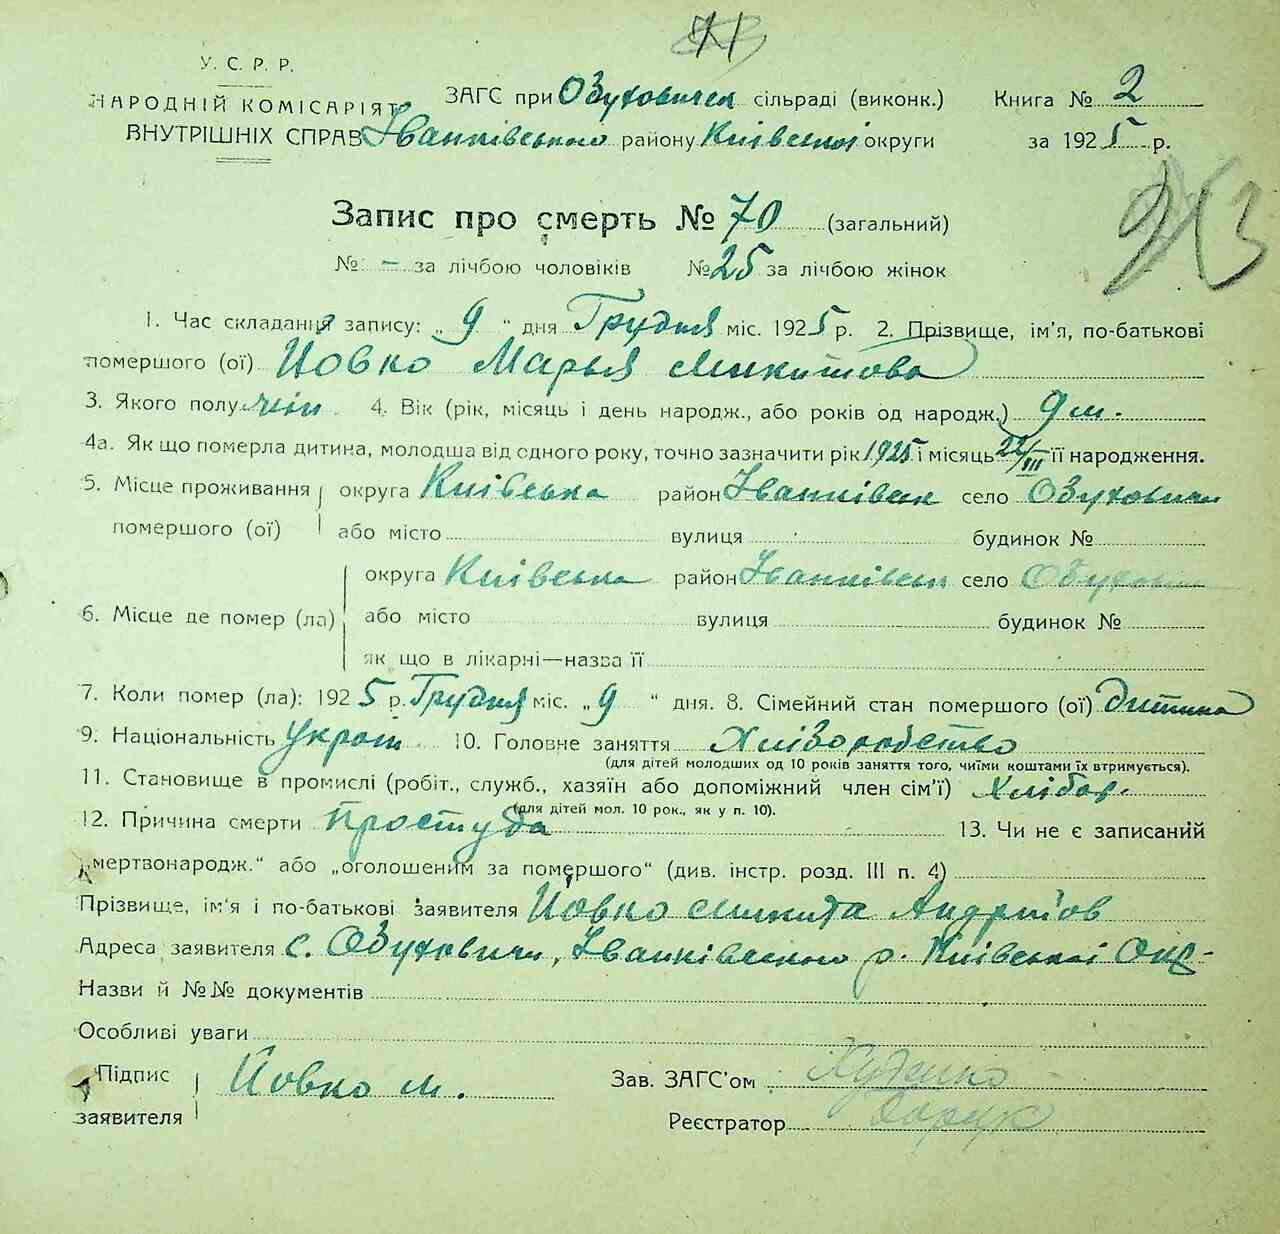 71
У. С. Р. Р.
НАРОДНІЙ КОМІСАРІЯТ
ВНУТРІШНІХ СПРАВ
ЗАГС при Обуховичск сільраді (виконк.) Книга № 2
Іванківського району Київської округи за 1925 р.
Запис про смерть № 70 (загальний)
№ - за лічбою чоловіків № 25 за лічбою жінок
1. Час складання запису: „ 9 " дня Грудня міс. 1925 р. 2. Прізвище, ім'я, по-батькові
помершого (ої) Йовко Марья Микитова
3. Якого полу жін. 4. Вік (рік, місяць і день народж., або років од народж.) 9 м.
4а. Як що померла дитина, молодша від одного року, точно зазначити рік 1925 і місяць 22/III її народження.
5. Місце проживання помершого (ої) округа Київська район Іванківськ село Обуховичи
або місто вулиця будинок №
6. Місце де помер (ла) округа Київська район Іванківськ село
або місто вулиця будинок №
як що в лікарні—назва її
7. Коли помер (ла): 1925 р. Грудня міс. „ 9 " дня. 8. Сімейний стан помершого (ої) дитина
9. Національність Україн. 10. Головне заняття Хліборобство
(для дітей молодших од 10 років заняття того, чиїми коштами їх втримується).
11. Становище в промислі (робіт., служб., хазяїн або допоміжний член сім'ї) Хлібор.
(для дітей мол. 10 рок., як у п. 10).
12. Причина смерти Простуда 13. Чи не є записаний
„мертвонародж." або „оголошеним за помершого" (див. інстр. розд. III п. 4)
Прізвище, ім'я і по-батькові заявителя Йовко Микита Андріїов
Адреса заявителя с. Обуховичи, Іванківського р. Київської Окр-
Назви й №№ документів
Особливі уваги
Підпис заявителя Йовко М. Зав. ЗАГС'ом
Реєстратор